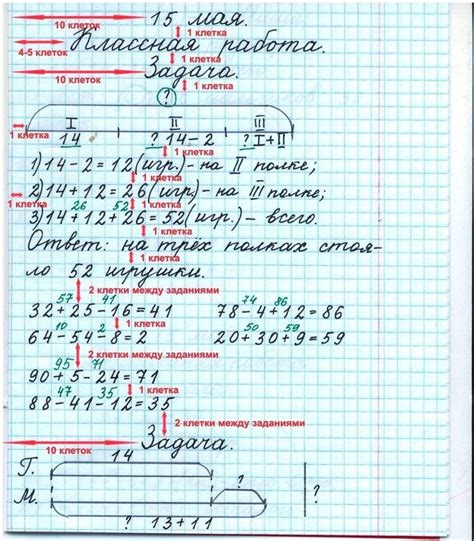 10 клеток 15 мая.
1 клетка
4-5 клеток Классная работа.
1 клетка
10 клеток Задача.
? 1 клетка
1 клетка I II III
14 ? 14-2 ? I+II
1 клетка
1) 14-2=12 (игр.) - на II полке;
1 клетка 1 клетка
2) 14+12=26 (игр.) - на III полке;
26 52 1 клетка
3) 14+12+26=52 (игр.) - всего.
1 клетка
Ответ: на трёх полках стоя-
1 клетка
ло 52 игрушки.
2 клетки между заданиями
57 41 74 86
32+25-16=41 78-4+12=86
10 2 1 клетка 50 59
64-54-8=2 20+30+9=59
2 клетки между заданиями
95 71
90+5-24=71
47 35 1 клетка
88-41-12=35
2 клетки между заданиями
10 клеток Задача.
14
Г.
?
М. ?
? 13+11